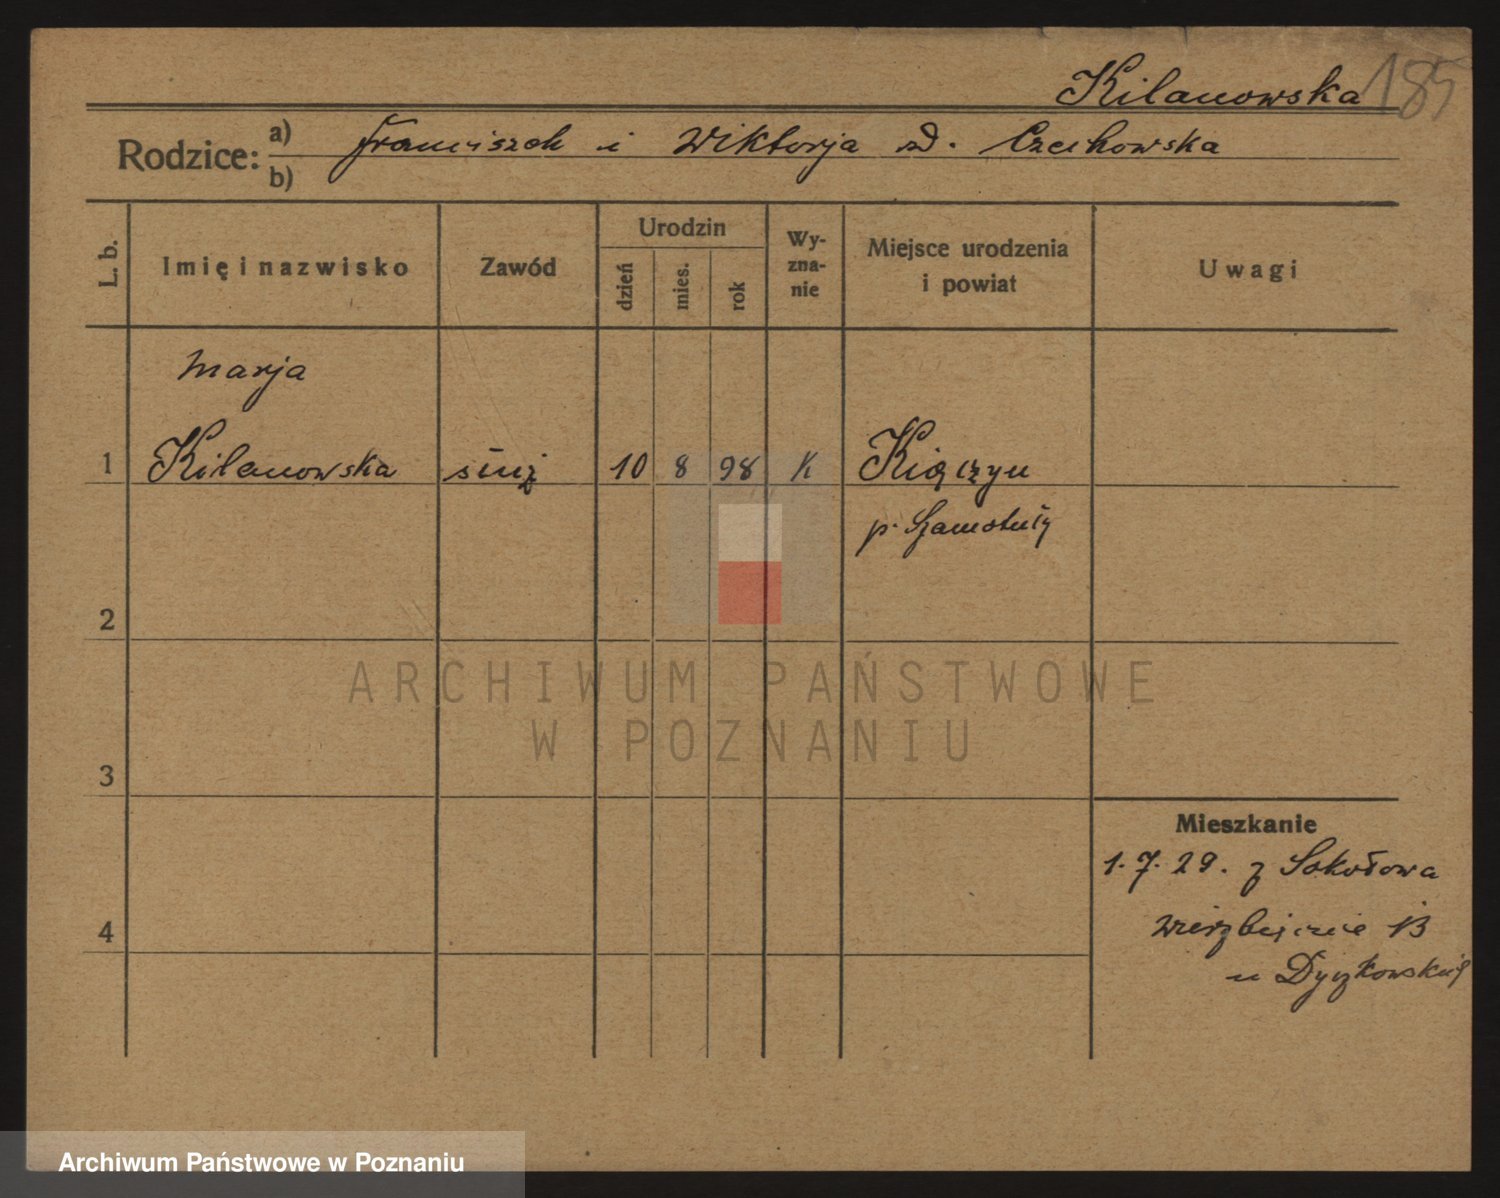 Kilanowska 185
Rodzice: a) Franciszek i Wiktorja zd. Czechowska
b)
L. b.
Imię i nazwisko
Zawód
Urodzin
dzień
mies.
rok
Wy-
zna-
nie
Miejsce urodzenia
i powiat
Uwagi
Marja
1 Kilanowska służ 10 8 98 K Kiączyn
p. Szamotuły
2
ARCHIWUM PAŃSTWOWE
W POZNANIU
3
Mieszkanie
1.7.29. z Sokołowa
4
Wierzbięcice 13
u Dyczkowskiej
Archiwum Państwowe w Poznaniu